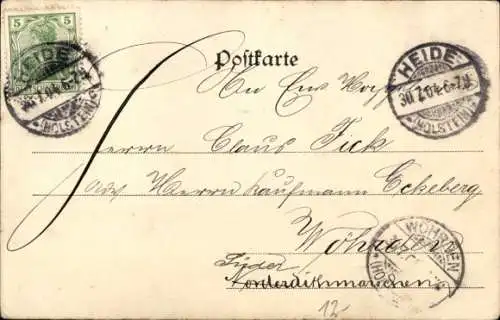 5
5
Postkarte
HEIDE
30.7.04.6-7N
*(HOLSTEIN)*
HEIDE
30.7.04.6-7N
*(HOLSTEIN)*
An
Herrn Claus Fick
Adr Herrn Kaufmann Eckeberg
Wöhrden
WÖHRDEN
Süder
Norderdithmarschen
12-